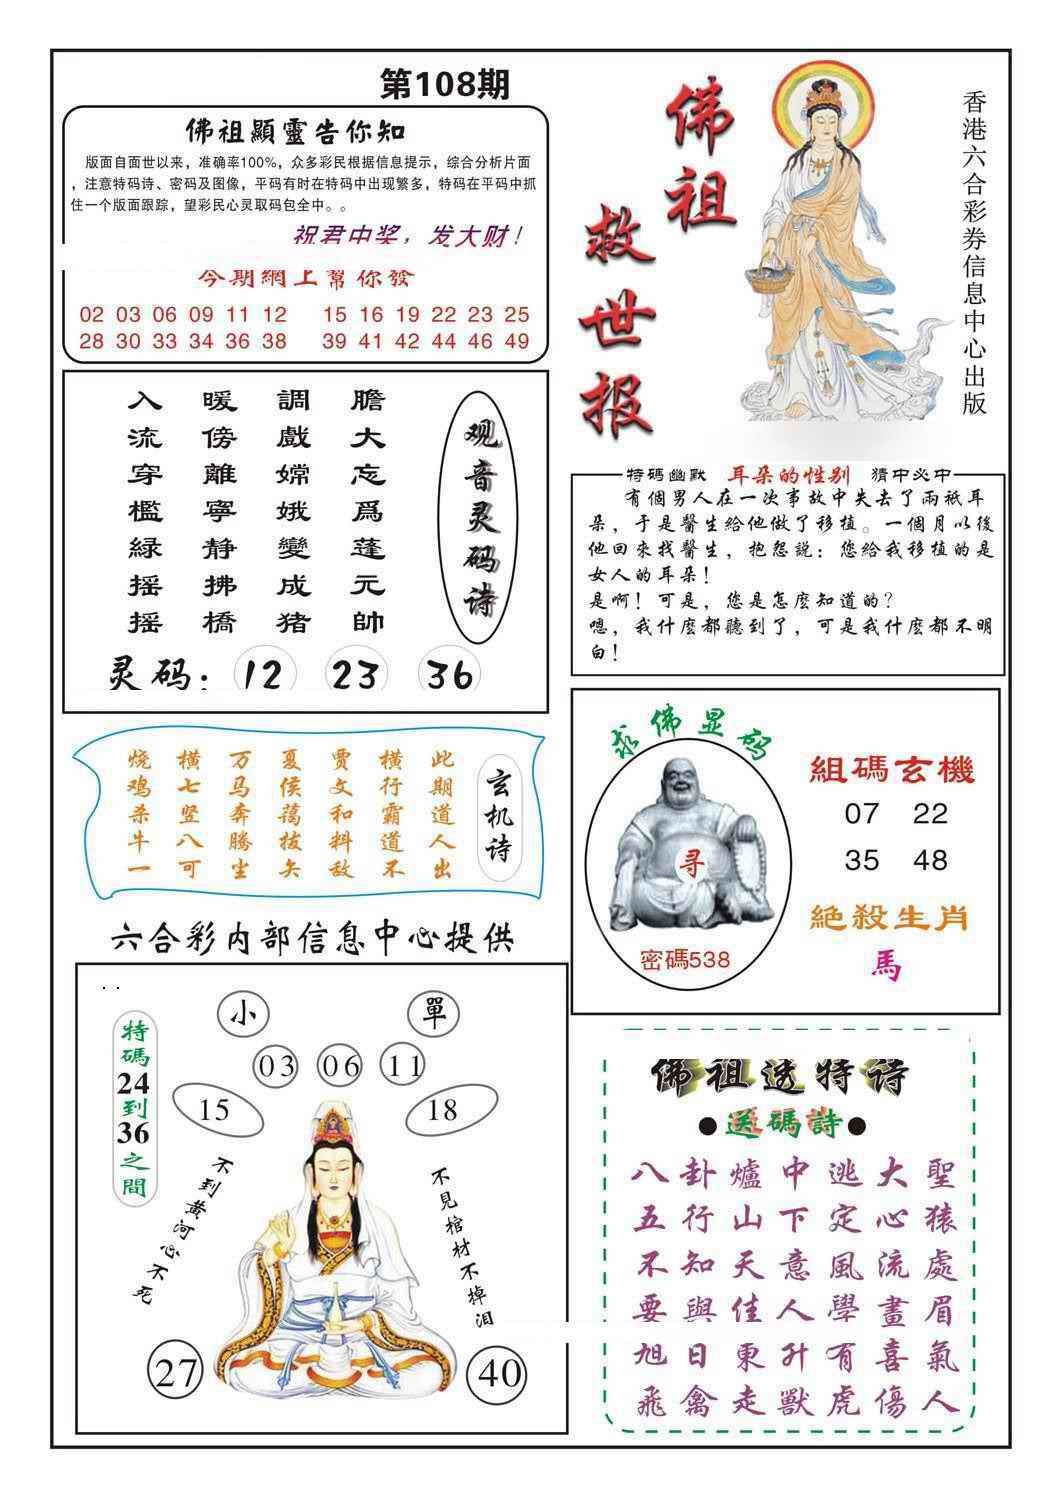 第108期
佛祖顯靈告你知
版面自面世以来，准确率100%，众多彩民根据信息提示，综合分析片面
，注意特码诗、密码及图像，平码有时在特码中出现繁多，特码在平码中抓
住一个版面跟踪，望彩民心灵取码包全中。。
祝君中奖，发大财！
今期網上幫你發
02 03 06 09 11 12 15 16 19 22 23 25
28 30 33 34 36 38 39 41 42 44 46 49
佛祖
救世报
香港六合彩券信息中心出版
观音灵码诗
膽大忘爲蓬元帥
調戲嫦娥變成猪
暖傍離寧静拂橋
入流穿檻緑摇摇
灵码：12 23 36
特碼幽默 耳朵的性别 猜中必中
有個男人在一次事故中失去了兩衹耳
朵，于是醫生給他做了移植。一個月以後
他回來找醫生，抱怨説：您給我移植的是
女人的耳朵！
是啊！可是，您是怎麽知道的？
嗯，我什麽都聽到了，可是我什麽都不明
白！
玄机诗
此期道人出
横行霸道不
贾文和料敌
夏侯蔼拔矢
万马奔腾生
横七竖八可
烧鸡杀牛一
求佛显码
寻
密碼538
組碼玄機
07 22
35 48
絶殺生肖
馬
六合彩内部信息中心提供
特碼24到36之間
小 單
03 06 11
15 18
不到黄河心不死
不见棺材不掉泪
27 40
佛祖透特诗
●送碼詩●
八卦爐中逃大聖
五行山下定心猿
不知天意風流處
要與佳人學畫眉
旭日東升有喜氣
飛禽走獸虎傷人